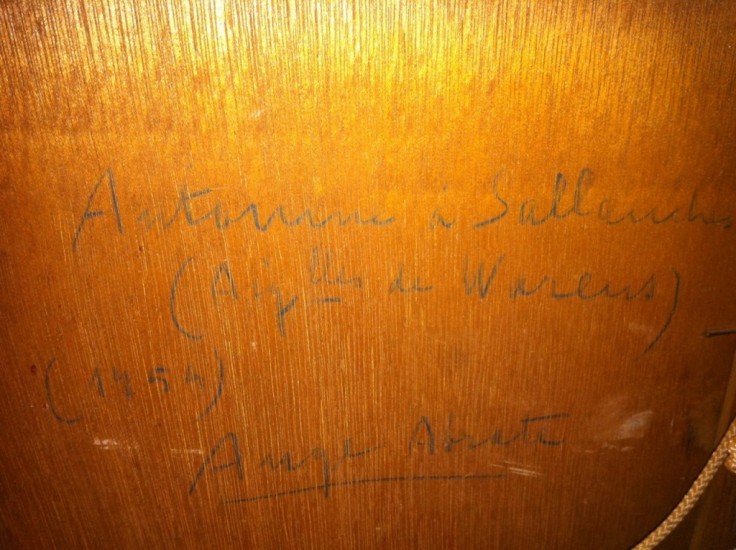 Automne à Sallanches
(Aiglles de Warens)
(1954)
Ange Abrate